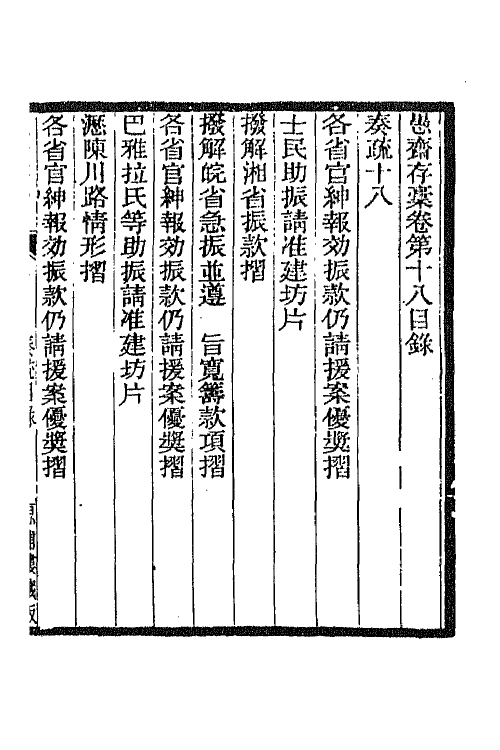 愚齋存稾卷第十八目錄
奏疏十八
各省官紳報効振款仍請援案優奬摺
士民助振請准建坊片
撥解湘省振款摺
撥解皖省急振並遵　旨寬籌款項摺
各省官紳報効振款仍請援案優奬摺
巴雅拉氏等助振請准建坊片
瀝陳川路情形摺
各省官紳報効振款仍請援案優奬摺